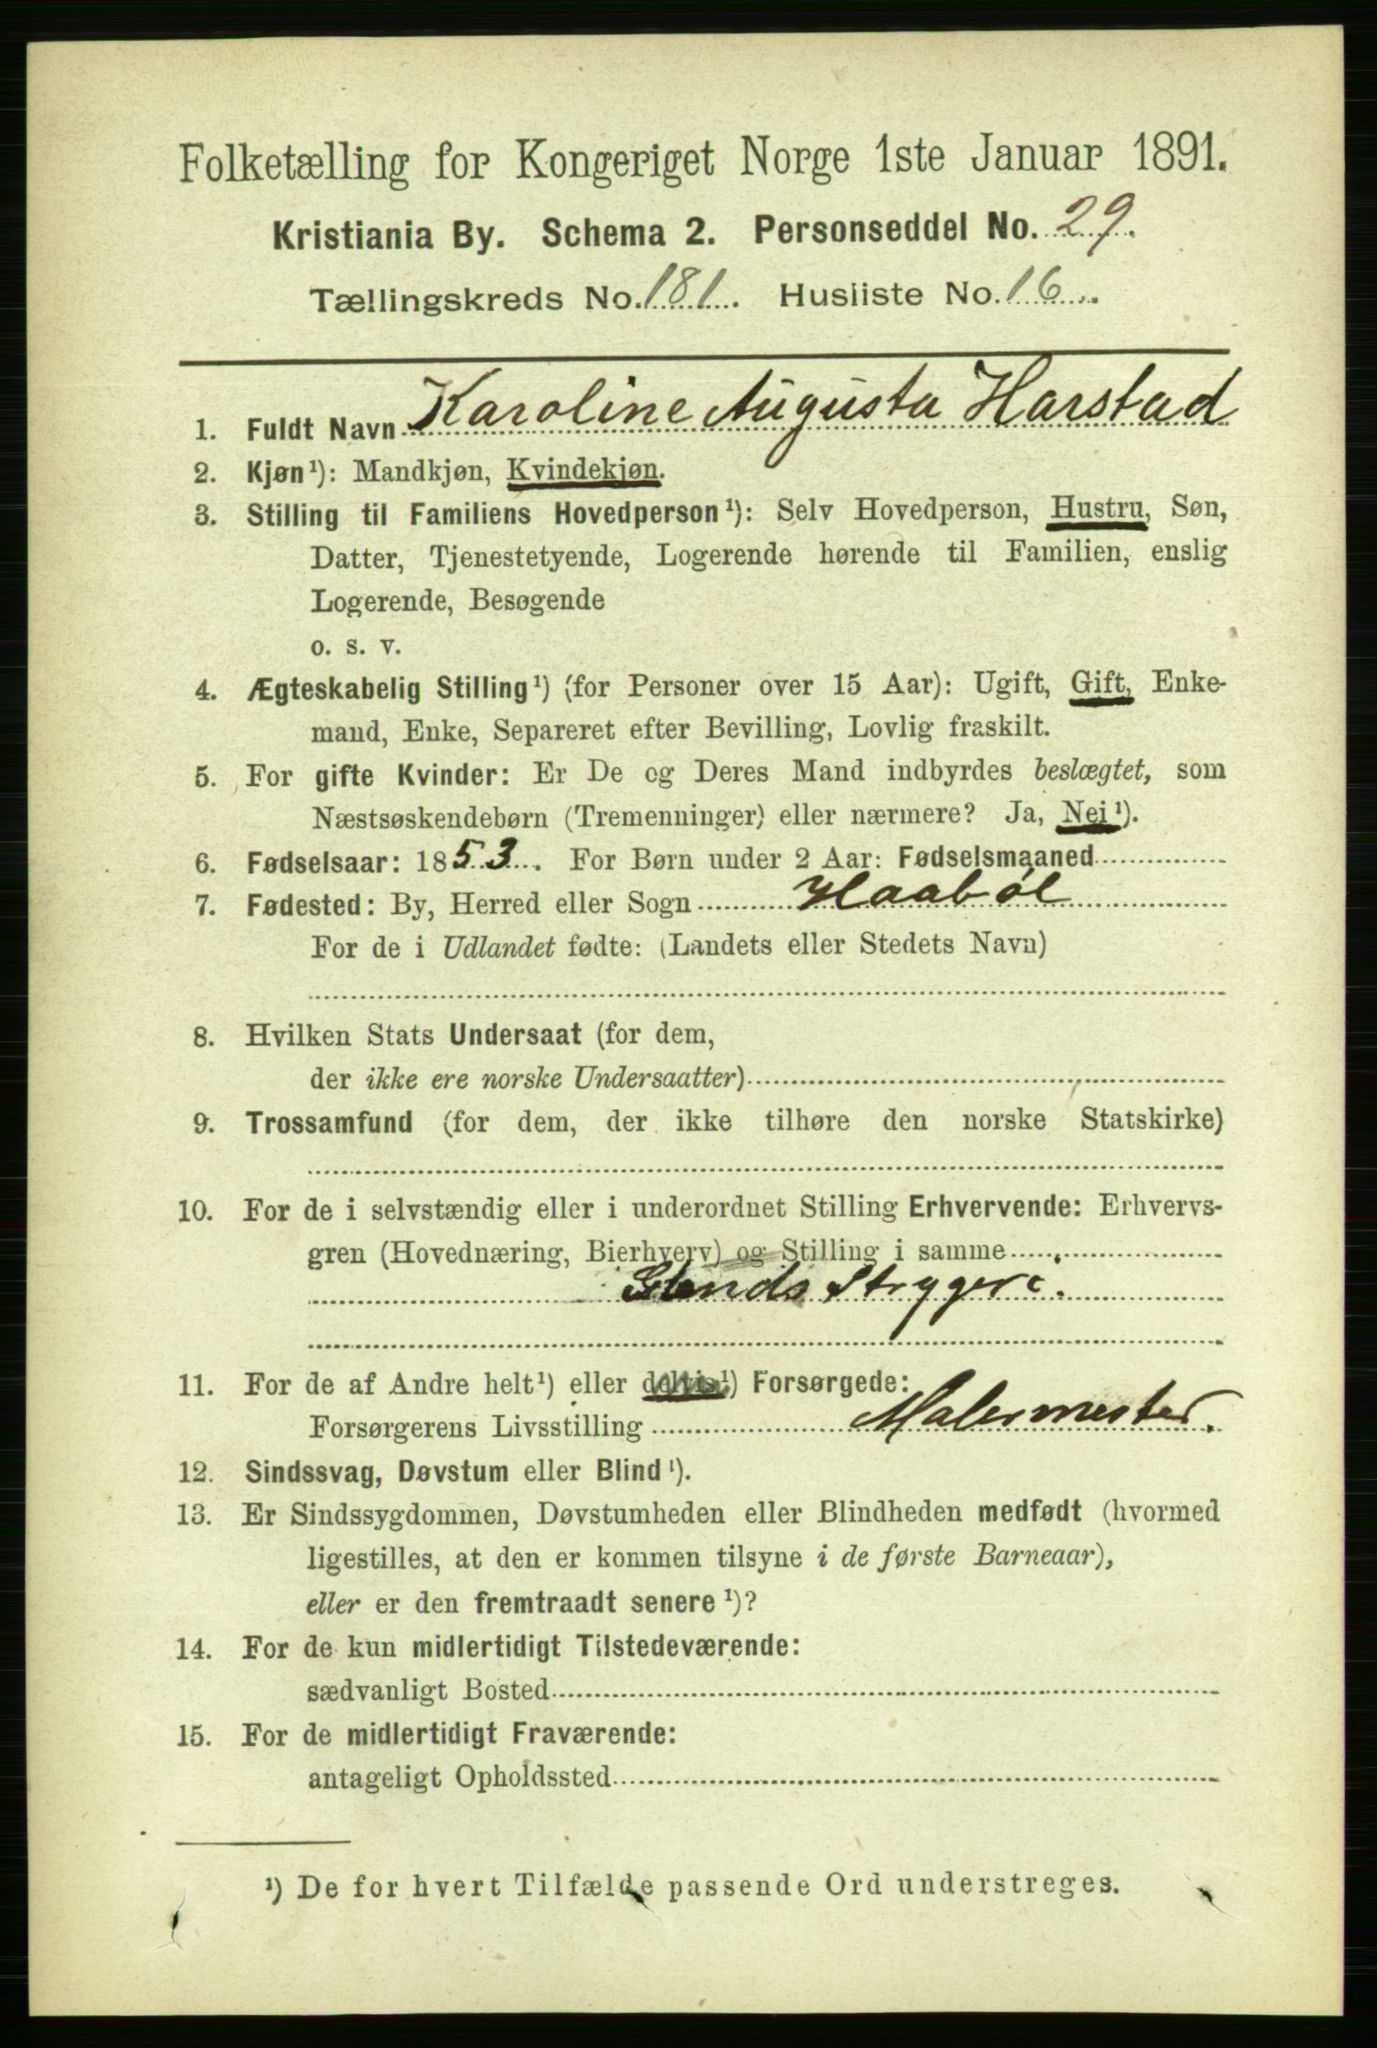 Folketælling for Kongeriget Norge 1ste Januar 1891.
Kristiania By. Schema 2. Personseddel No. 29.
Tællingskreds No. 181. Husliste No. 16.
1. Fuldt Navn Karoline Augusta Harstad
2. Kjøn¹): Mandkjøn, Kvindekjøn.
3. Stilling til Familiens Hovedperson¹): Selv Hovedperson, Hustru, Søn,
Datter, Tjenestetyende, Logerende hørende til Familien, enslig
Logerende, Besøgende
o. s. v.
4. Ægteskabelig Stilling¹) (for Personer over 15 Aar): Ugift, Gift, Enke-
mand, Enke, Separeret efter Bevilling, Lovlig fraskilt.
5. For gifte Kvinder: Er De og Deres Mand indbyrdes beslægtet, som
Næstsøskendebørn (Tremenninger) eller nærmere? Ja, Nei¹).
6. Fødselsaar: 1853. For Børn under 2 Aar: Fødselsmaaned
7. Fødested: By, Herred eller Sogn Haabøl
For de i Udlandet fødte: (Landets eller Stedets Navn)
8. Hvilken Stats Undersaat (for dem,
der ikke ere norske Undersaatter)
9. Trossamfund (for dem, der ikke tilhøre den norske Statskirke)
10. For de i selvstændig eller i underordnet Stilling Erhvervende: Erhvervs-
gren (Hovednæring, Bierhverv) og Stilling i samme
Strygeri.
11. For de af Andre helt¹) eller delvis¹) Forsørgede:
Forsørgerens Livsstilling Malermester.
12. Sindssvag, Døvstum eller Blind¹).
13. Er Sindssygdommen, Døvstumheden eller Blindheden medfødt (hvormed
ligestilles, at den er kommen tilsyne i de første Barneaar),
eller er den fremtraadt senere¹)?
14. For de kun midlertidigt Tilstedeværende:
sædvanligt Bosted
15. For de midlertidigt Fraværende:
antageligt Opholdssted
¹) De for hvert Tilfælde passende Ord understreges.